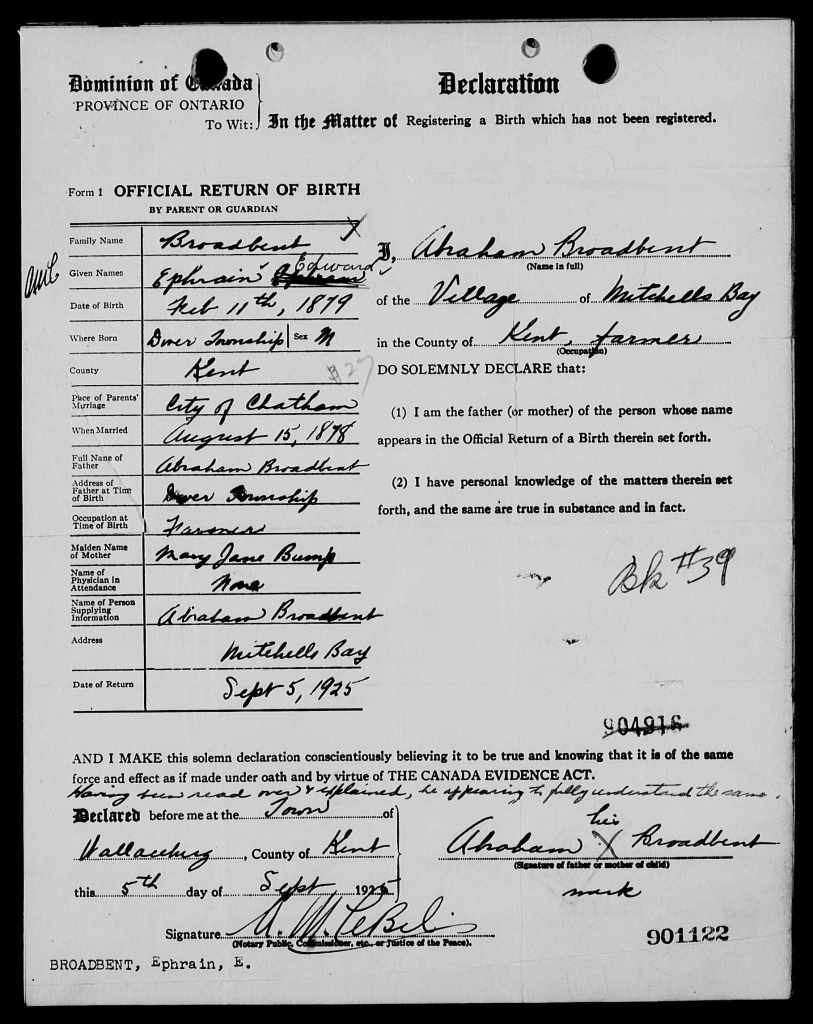 Dominion of Canada
PROVINCE OF ONTARIO
To Wit:
Declaration
In the Matter of Registering a Birth which has not been registered.
Form 1 OFFICIAL RETURN OF BIRTH
BY PARENT OR GUARDIAN
Family Name Broadbent
Given Names Ephrain Edward
Date of Birth Feb 11th, 1879
Where Born Dover Township Sex M
County Kent
#27
Place of Parents' Marriage City of Chatham
When Married August 15, 1878
Full Name of Father Abraham Broadbent
Address of Father at Time of Birth Dover Township
Occupation at Time of Birth Farmer
Maiden Name of Mother Mary Jane Bump
Name of Physician in Attendance None
Name of Person Supplying Information Abraham Broadbent
Address Mitchells Bay
Date of Return Sept 5, 1925
I, Abraham Broadbent
(Name in full)
of the Village of Mitchells Bay
in the County of Kent, farmer
(Occupation)
DO SOLEMNLY DECLARE that:
(1) I am the father (or mother) of the person whose name
appears in the Official Return of a Birth therein set forth.
(2) I have personal knowledge of the matters therein set
forth, and the same are true in substance and in fact.
Bk #39
904916
AND I MAKE this solemn declaration conscientiously believing it to be true and knowing that it is of the same
force and effect as if made under oath and by virtue of THE CANADA EVIDENCE ACT.
Having been read over & explained, he appearing to fully understand the same.
Declared before me at the Town of
Wallaceburg, County of Kent
this 5th day of Sept 1925
his
Abraham X Broadbent
(Signature of father or mother of child)
mark
Signature
(Notary Public, Commissioner, etc., or Justice of the Peace).
901122
BROADBENT, Ephrain, E.